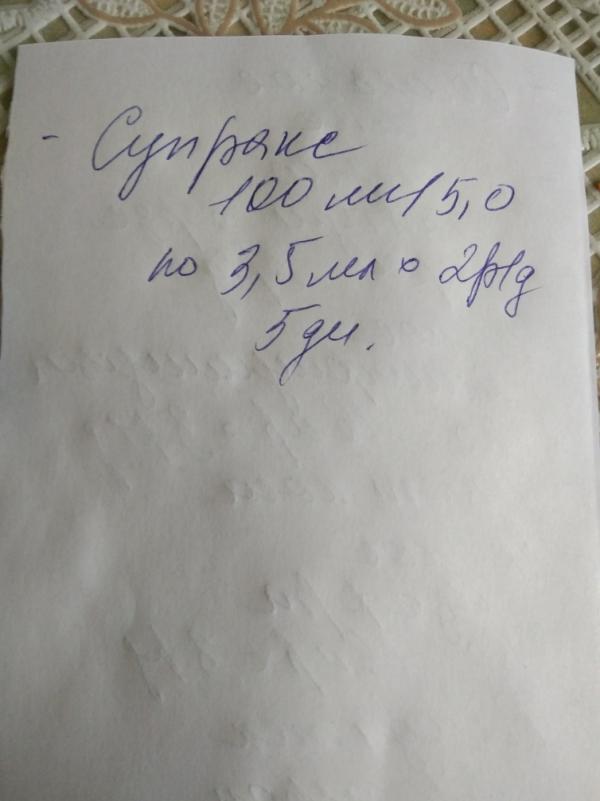 - Супракс
100 мл/5,0
по 3,5 мл х 2р/д
5 дн.